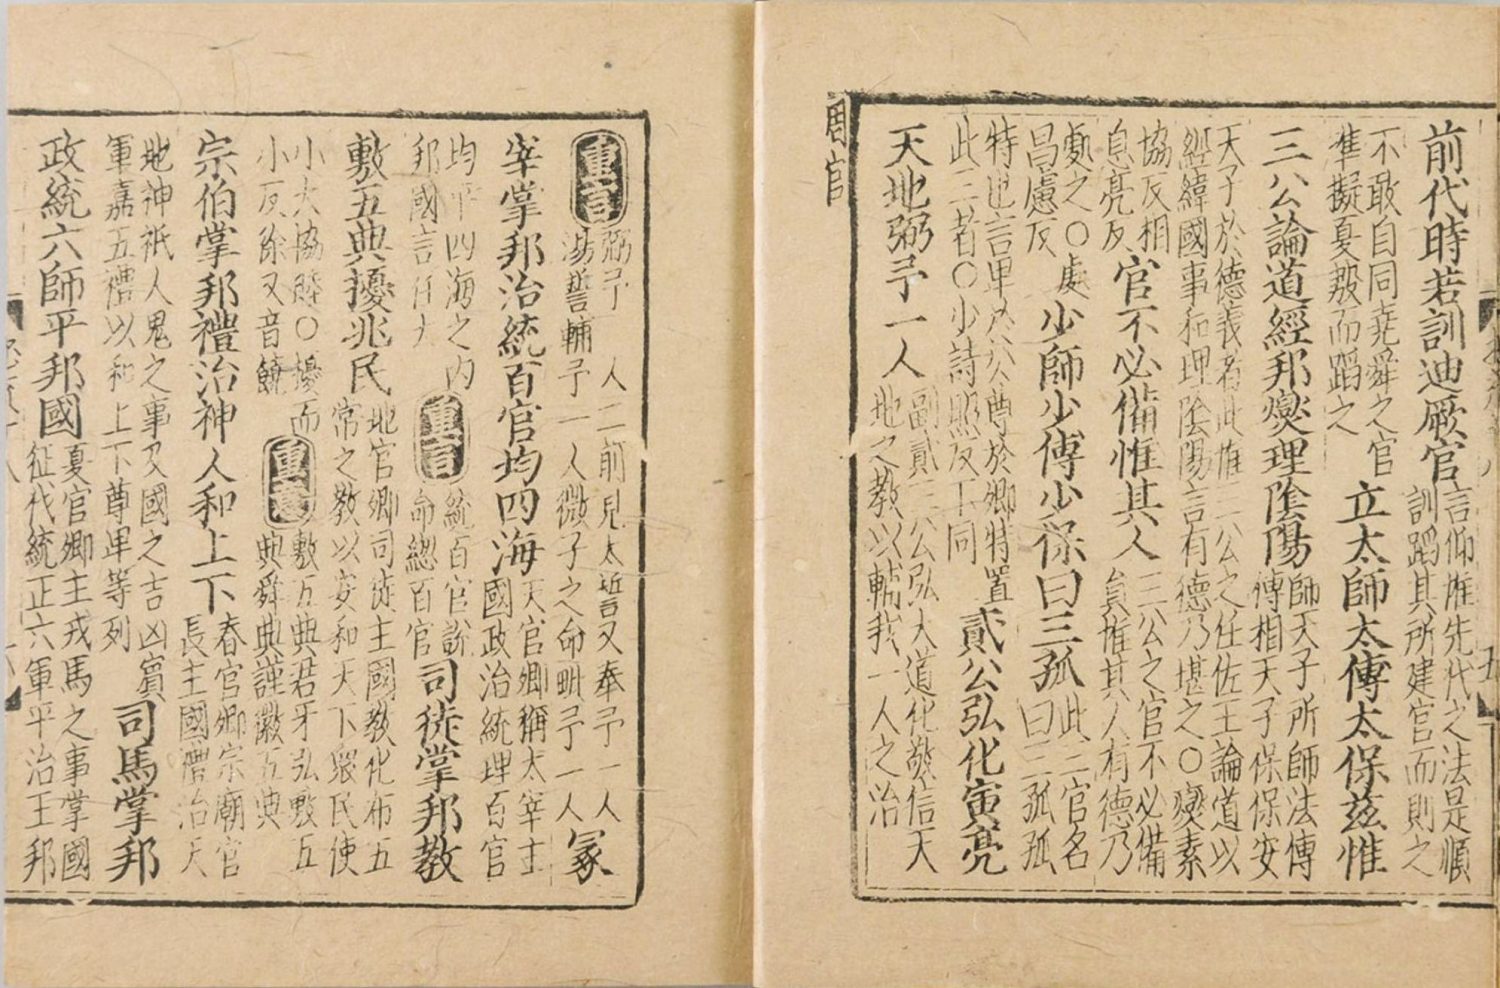 前代時若訓迪厥官言仰惟先代之法是順訓蹈其所建官而則之
不敢自同堯舜之官準擬夏殷而蹈之立太師太傅太保茲惟
三公論道經邦燮理陰陽師天子所師法傅傅相天子保保安
天子於德義者此惟三公之任佐王論道以經緯國事和理陰陽言有德乃堪之○燮素
協反相息亮反官不必備惟其人三公之官不必備員惟其人有德乃
處之○處昌慮反少師少傅少保曰三孤此三官名曰三孤孤
特也言卑於公尊於卿特置此三者○少詩照反下同貳公弘化寅亮
天地弼予一人副貳三公弘大道化敬信天地之教以輔我一人之治
周官
重言弼予一人二前見太誓又奉予一人湯誓輔予一人微子之命毗予一人冢
宰掌邦治統百官均四海天官卿稱太宰主國政治統理百官
均平四海之内邦國言任大重言統百官說命總百官司徒掌邦教
敷五典擾兆民地官卿司徒主國教化布五常之教以安和天下衆民使
小大協睦○擾而小反徐又音饒重意敷五典君牙弘敷五典舜典謹徽五典
宗伯掌邦禮治神人和上下春官卿宗廟官長主國禮治天
地神祇人鬼之事及國之吉凶賓軍嘉五禮以和上下尊卑等列司馬掌邦
政統六師平邦國夏官卿主戎馬之事掌國征伐統正六軍平治王邦